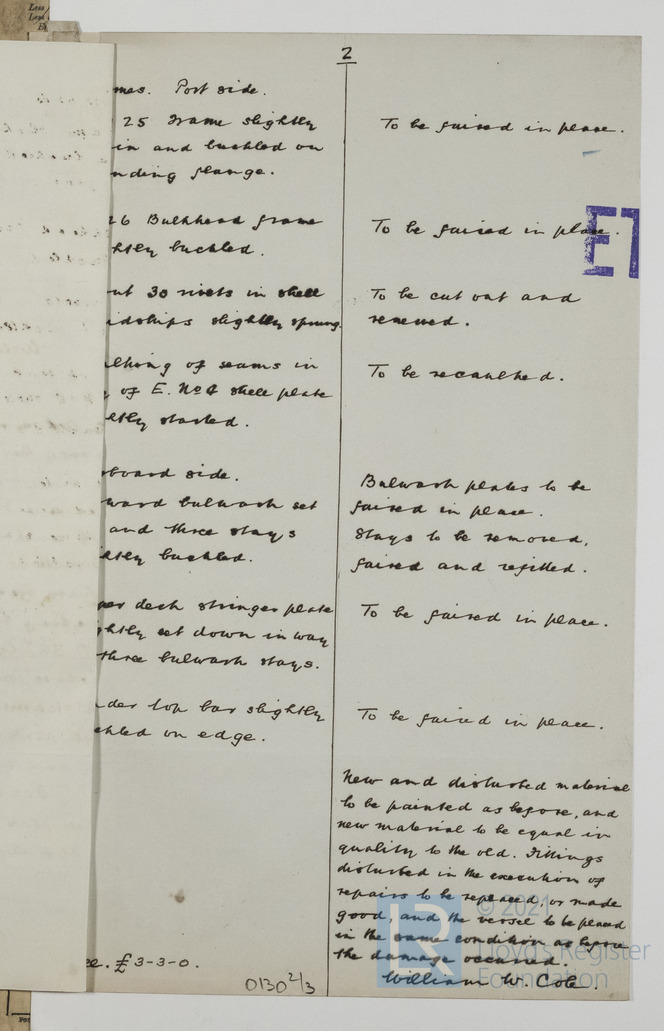 Less
2
mes. Port side.
25 Frame slightly
in and buckled on
nding flange.
To be faired in place.
26 Bulkhead frame
htly buckled.
To be faired in place.
ET
ut 30 rivets in shell
idships slightly sprung.
To be cut out and
renewed.
lking of seams in
of E. No 4 shell plate
htly started.
To be recaulked.
board side.
ward bulwark set
and three stays
htly buckled.
Bulwark plates to be
faired in place.
Stays to be removed,
faired and refitted.
per deck stringer plate
ghtly set down in way
three bulwark stays.
To be faired in place.
der top bar slightly
ckled on edge.
To be faired in place.
New and disturbed material
to be painted as before, and
new material to be equal in
quality to the old. Fittings
disturbed in the execution of
repairs to be replaced, or made
good, and the vessel to be placed
in the same condition as before
the damage occurred.
William W. Cole.
ee. £3-3-0.
0130 2/3
LR
© 2021
Lloyd's Register
Foundation